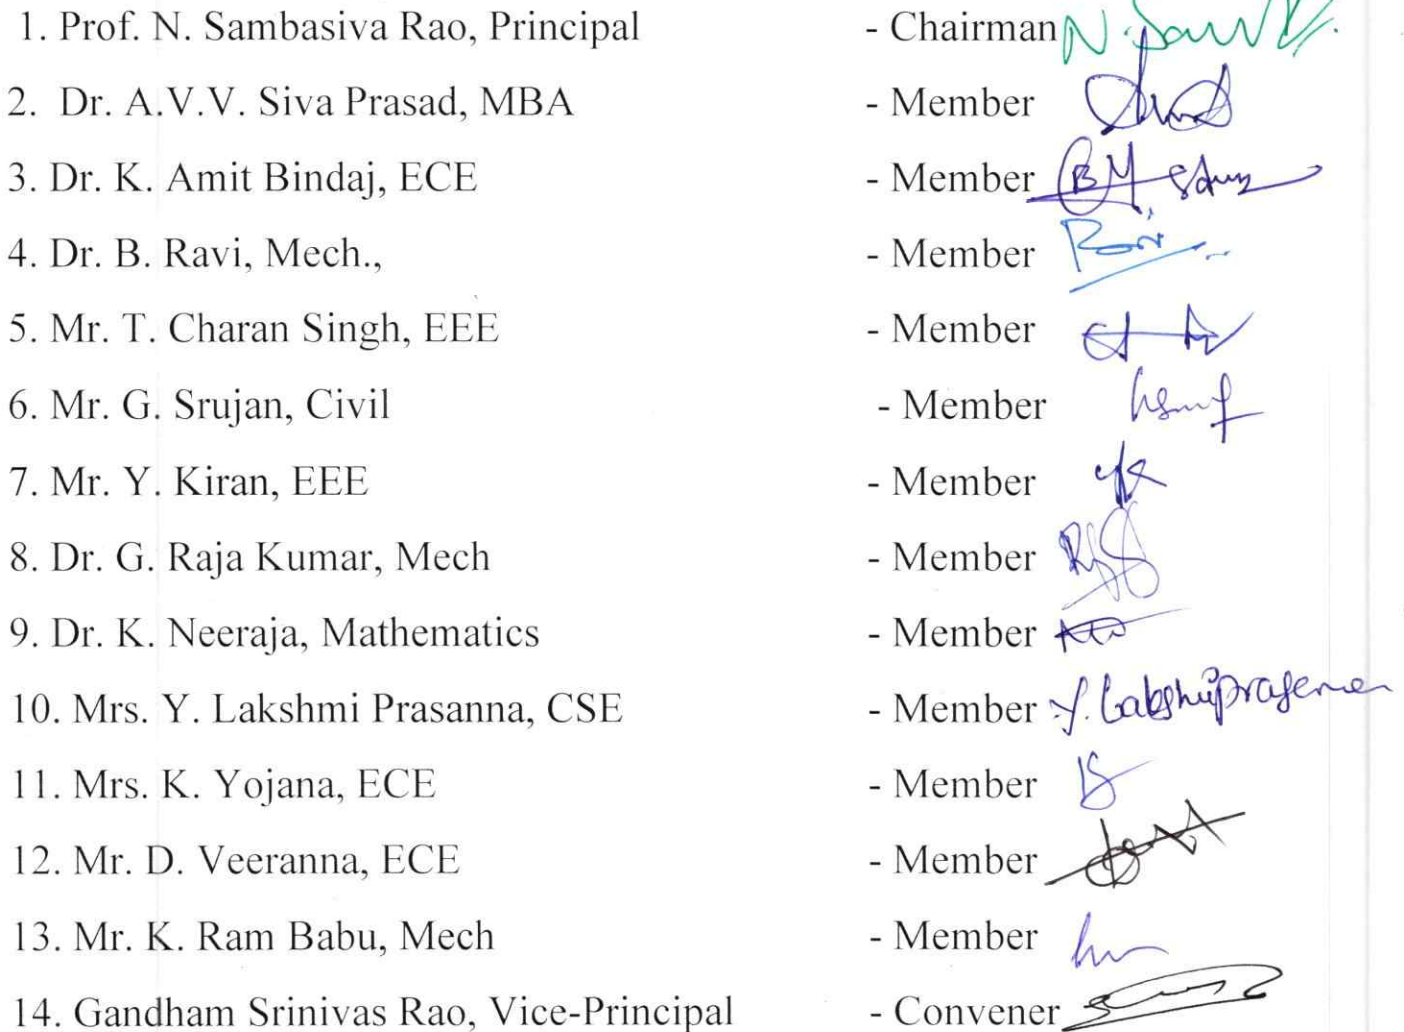 1. Prof. N. Sambasiva Rao, Principal - Chairman
2. Dr. A.V.V. Siva Prasad, MBA - Member
3. Dr. K. Amit Bindaj, ECE - Member
4. Dr. B. Ravi, Mech., - Member
5. Mr. T. Charan Singh, EEE - Member
6. Mr. G. Srujan, Civil - Member
7. Mr. Y. Kiran, EEE - Member
8. Dr. G. Raja Kumar, Mech - Member
9. Dr. K. Neeraja, Mathematics - Member
10. Mrs. Y. Lakshmi Prasanna, CSE - Member
11. Mrs. K. Yojana, ECE - Member
12. Mr. D. Veeranna, ECE - Member
13. Mr. K. Ram Babu, Mech - Member
14. Gandham Srinivas Rao, Vice-Principal - Convener